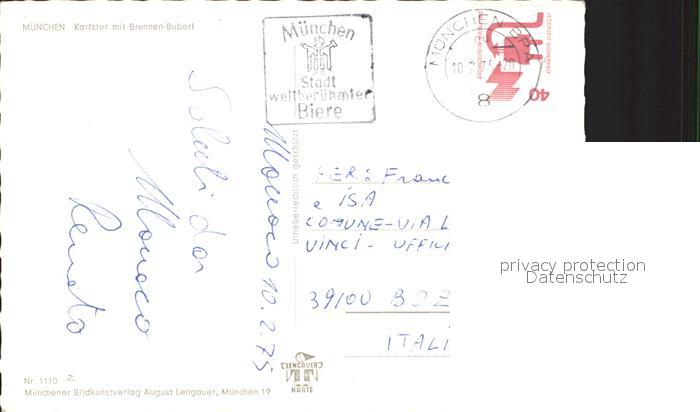 MÜNCHEN Karlstor mit Brunnen-Buberl
München
Stadt
weltberühmter
Biere
MÜNCHEN BPA
10.2.75-20
8
JEDERZEIT SICHERHEIT
DEUTSCHE BUNDESPOST
40
Saluti da
Monaco
Renato
Monaco 10.2.75
Urheberrechtlich geschützt
PER: Franc
e ISA
COMUNE-VIA L
VINCI - UFFICI
39100 BOZ
ITALI
privacy protection
Datenschutz
LENGAUER
KARTE
Nr. 1110 2
Münchener Bildkunstverlag August Lengauer, München 19